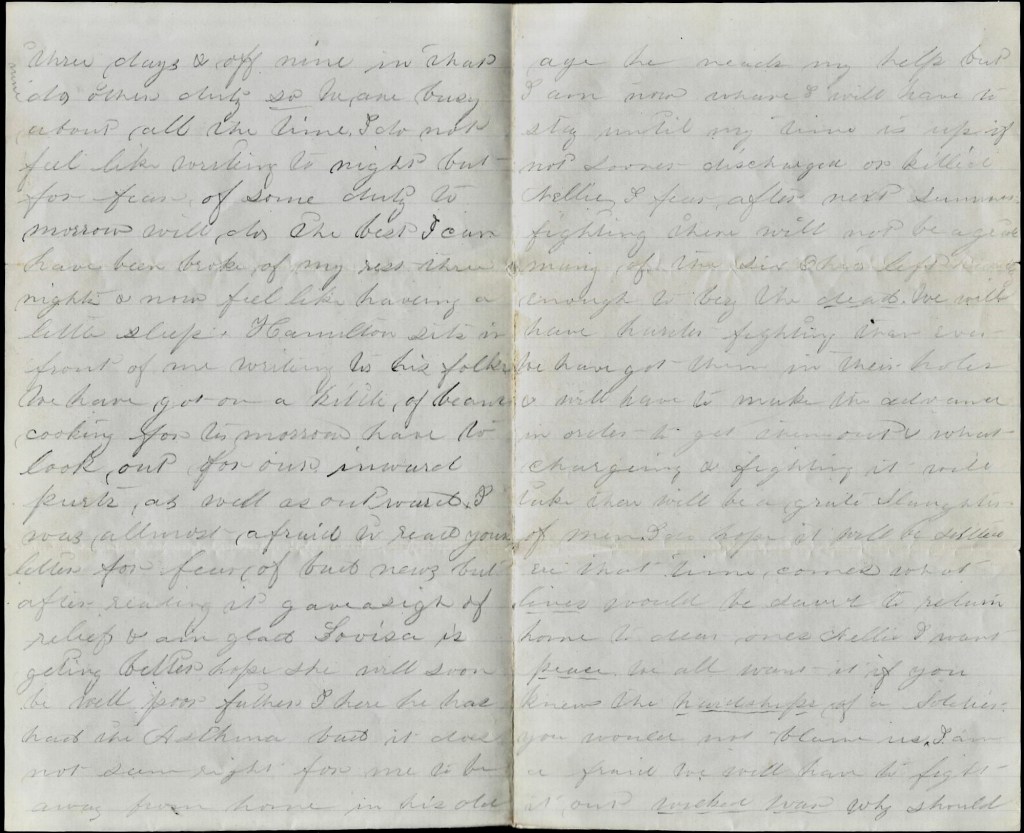 three days & off nine in that
do other duty so we are busy
about all the time, I do not
feel like writing to night but
for fear of some duty to
morrow will do the best I can
have been broke of my rest three
nights & now feel like haveing a
little sleep. Hamilton sits in
front of me writing to his folks
We have got on a kittle of beans
cooking for to morrow have to
look out for our inward
parts as well as outward. I
was allmost afraid to read your
letter for fear of bad news but
after reading it gave a sigh of
relief & am glad Lovisa is
geting better hope she will soon
be well poor father I here he has
had the Asthma bad it does
not seem right for me to be
away from home in his old
age he needs my help but
I am now where I will have to
stay until my time is up if
not sooner discharged or killed
Nellie I fear after next Summer
fighting there will not be a great
many of the left
enough to beg the dead. We will
have harder fighting than ever
We have got them in their holes
& will have to make the advance
in order to get them out & what
chargeing & fighting it will
take thear will be a grate Slaughter
of men I do hope it will be settled
ere that time comes what
lives would be saved to return
home to dear ones Nellie I want
peace. We all want it if you
knew the hardships of a Soldier
you would not blame us. I am
a fraid we will have to fight
it out wicked war why should